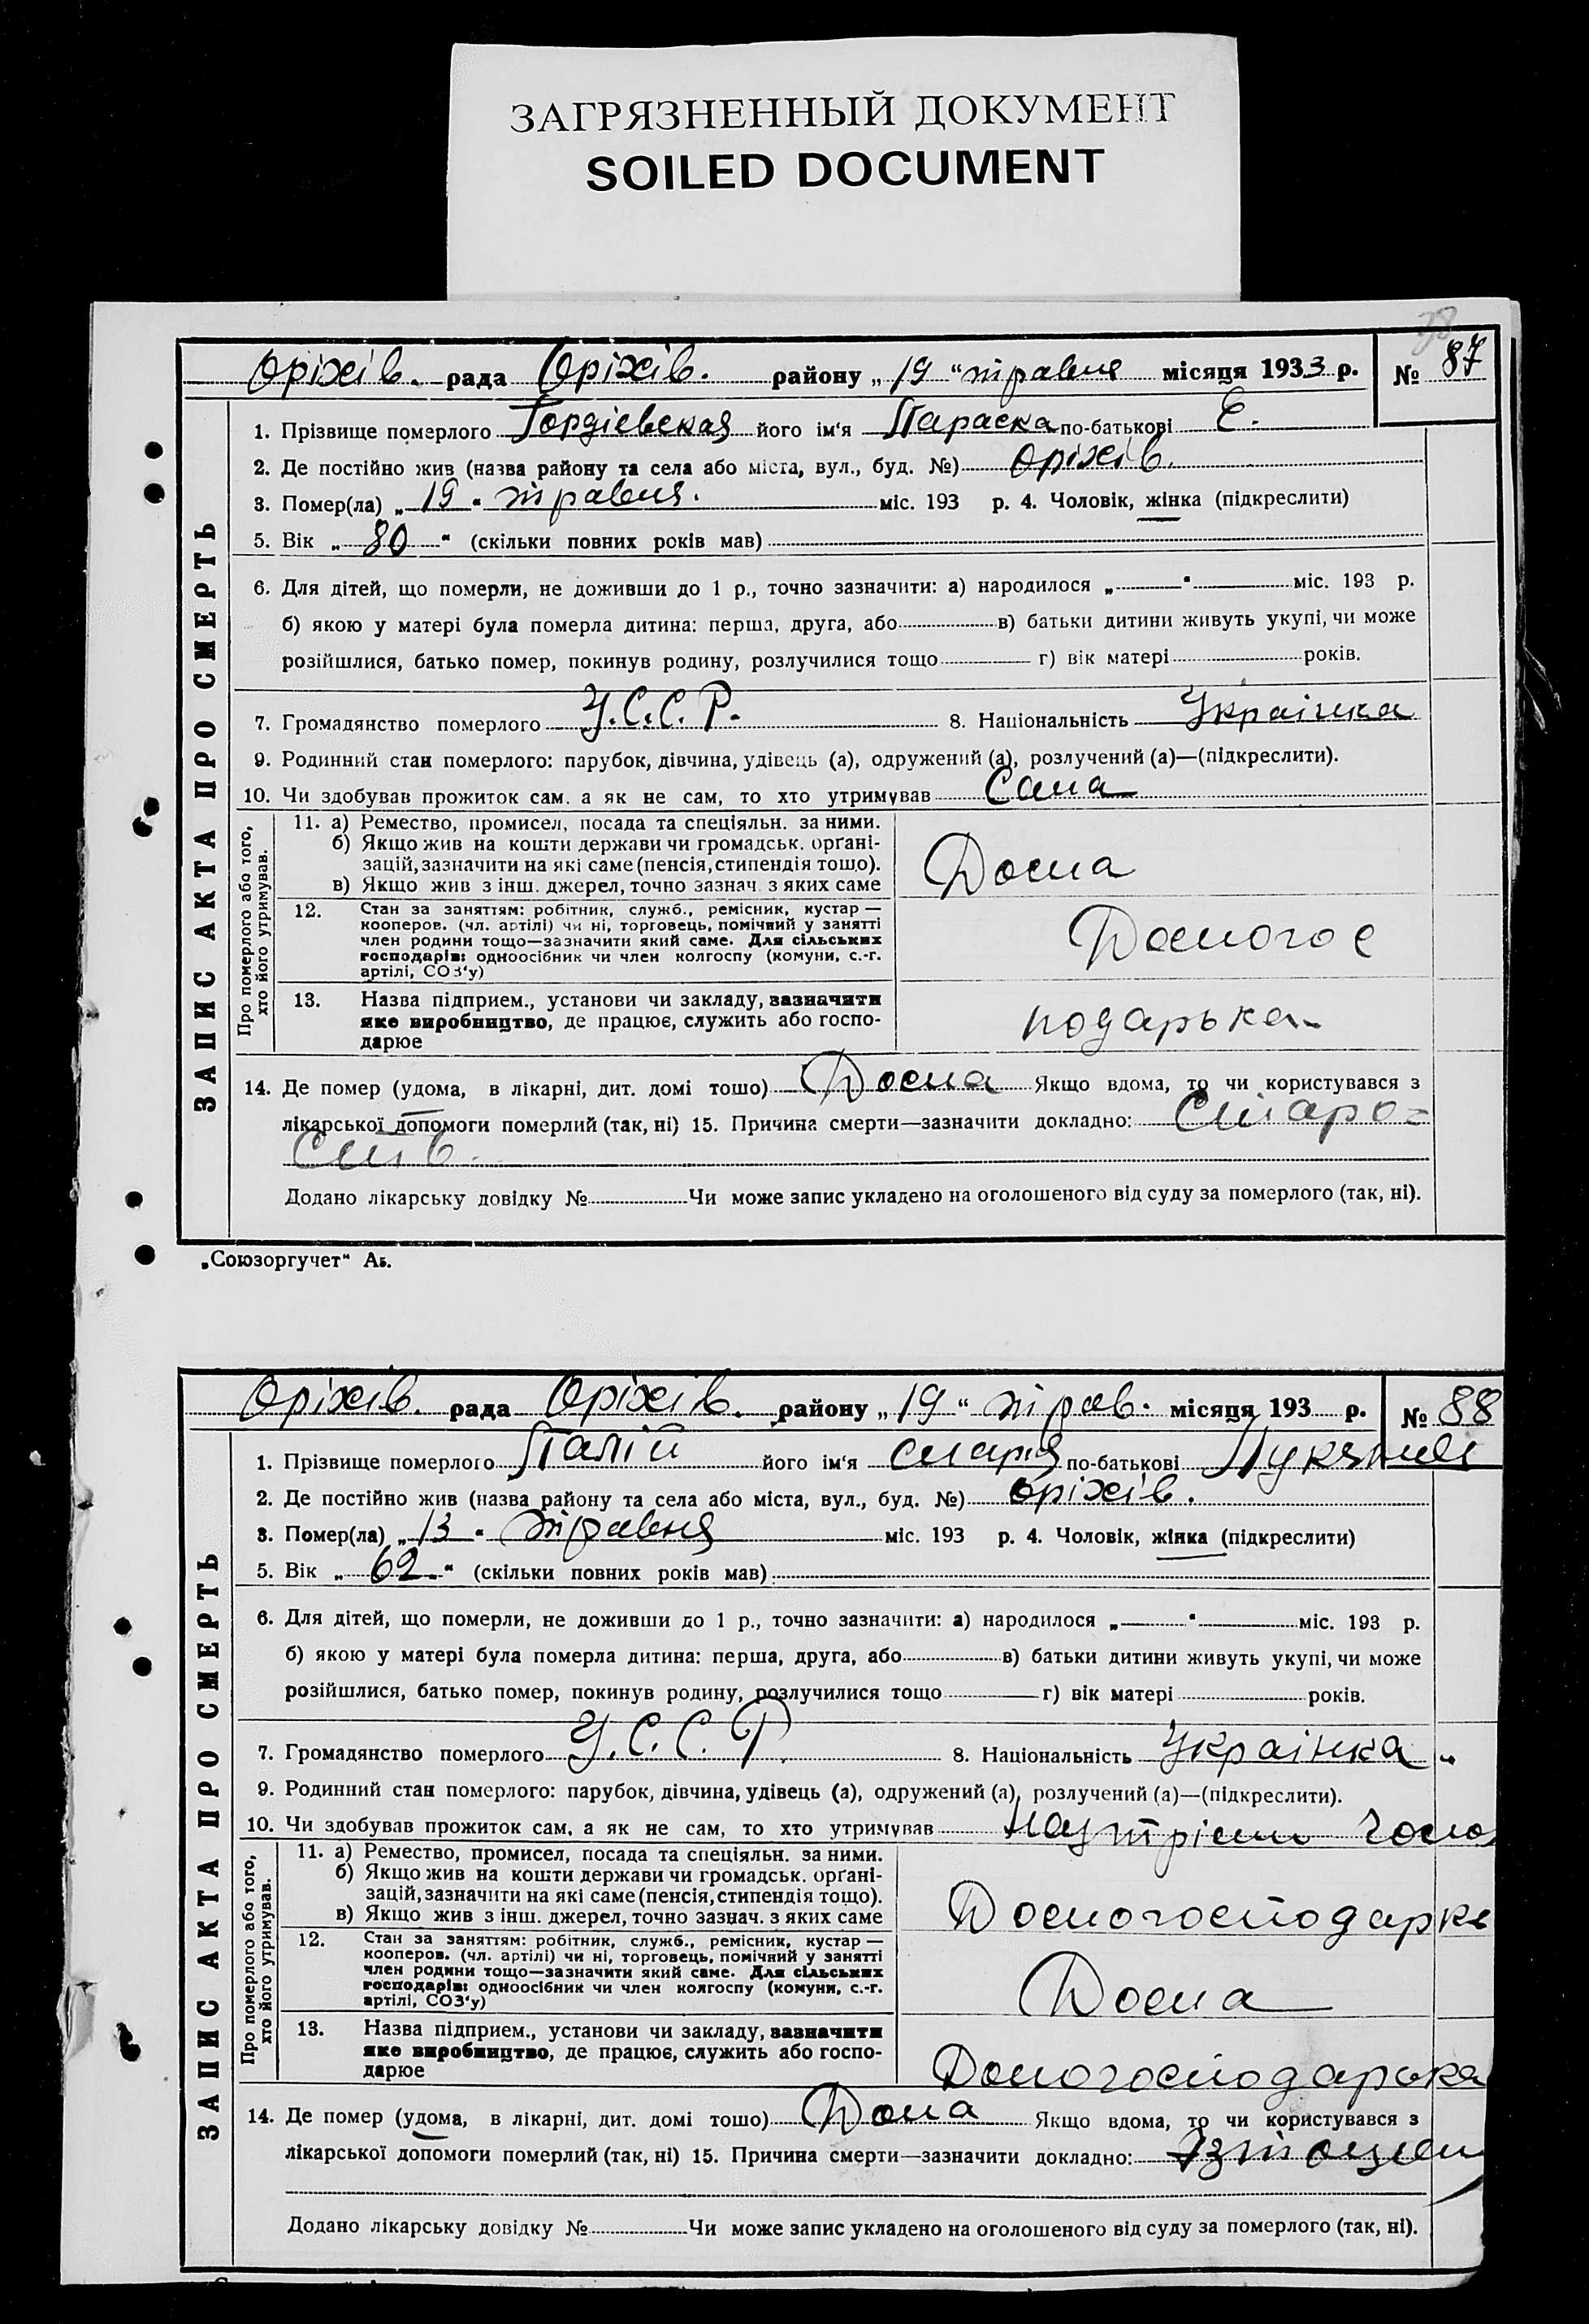 ЗАГРЯЗНЕННЫЙ ДОКУМЕНТ
SOILED DOCUMENT
ЗАПИС АКТА ПРО СМЕРТЬ
Оріхів. рада Оріхів. району „19“ травня місяця 1933 р. № 87
1. Прізвище померлого Гордіевская його ім'я Параска по-батькові Е.
2. Де постійно жив (назва району та села або міста, вул., буд. №) Оріхів.
3. Помер(ла) „19“ травня. міс. 193 р. 4. Чоловік, жінка (підкреслити)
5. Вік „80“ (скільки повних років мав)
6. Для дітей, що померли, не доживши до 1 р., точно зазначити: а) народилося „ “ міс. 193 р.
б) якою у матері була померла дитина: перша, друга, або в) батьки дитини живуть укупі, чи може
розійшлися, батько помер, покинув родину, розлучилися тощо г) вік матері років.
7. Громадянство померлого У.С.С.Р. 8. Національність Українка
9. Родинний стан померлого: парубок, дівчина, удівець (а), одружений (а), розлучений (а)—(підкреслити).
10. Чи здобував прожиток сам, а як не сам, то хто утримував Сама
Про померлого або того, хто його утримував.
11. а) Ремество, промисел, посада та спеціяльн. за ними.
б) Якщо жив на кошти держави чи громадськ. орґані-
зацій, зазначити на які саме (пенсія, стипендія тощо).
в) Якщо жив з інш. джерел, точно зазнач. з яких саме
Дома
12. Стан за заняттям: робітник, служб., ремісник, кустар —
кооперов. (чл. артілі) чи ні, торговець, помічний у занятті
член родини тощо—зазначити який саме. Для сільських
господарів: одноосібник чи член колгоспу (комуни, с.-г.
артілі, СОЗ'у)
Домогос
13. Назва підприєм., установи чи закладу, зазначити
яке виробництво, де працює, служить або госпо-
дарює
подарька
14. Де помер (удома, в лікарні, дит. домі тошо) Дома Якщо вдома, то чи користувався з
лікарської допомоги померлий (так, ні) 15. Причина смерти—зазначити докладно: Старо=
сть.
Додано лікарську довідку № Чи може запис укладено на оголошеного від суду за померлого (так, ні).
„Союзоргучет“ Аз.
ЗАПИС АКТА ПРО СМЕРТЬ
Оріхів. рада Оріхів. району „19“ трав. місяця 193 р. № 88
1. Прізвище померлого Палій його ім'я Марія по-батькові
2. Де постійно жив (назва району та села або міста, вул., буд. №) Оріхів.
3. Помер(ла) „13“ травня міс. 193 р. 4. Чоловік, жінка (підкреслити)
5. Вік „62“ (скільки повних років мав)
6. Для дітей, що померли, не доживши до 1 р., точно зазначити: а) народилося „ “ міс. 193 р.
б) якою у матері була померла дитина: перша, друга, або в) батьки дитини живуть укупі, чи може
розійшлися, батько помер, покинув родину, розлучилися тощо г) вік матері років.
7. Громадянство померлого У.С.С.Р. 8. Національність Українка
9. Родинний стан померлого: парубок, дівчина, удівець (а), одружений (а), розлучений (а)—(підкреслити).
10. Чи здобував прожиток сам, а як не сам, то хто утримував
Про померлого або того, хто його утримував.
11. а) Ремество, промисел, посада та спеціяльн. за ними.
б) Якщо жив на кошти держави чи громадськ. орґані-
зацій, зазначити на які саме (пенсія, стипендія тощо).
в) Якщо жив з інш. джерел, точно зазнач. з яких саме
Домогосподарка
12. Стан за заняттям: робітник, служб., ремісник, кустар —
кооперов. (чл. артілі) чи ні, торговець, помічний у занятті
член родини тощо—зазначити який саме. Для сільських
господарів: одноосібник чи член колгоспу (комуни, с.-г.
артілі, СОЗ'у)
Дома
13. Назва підприєм., установи чи закладу, зазначити
яке виробництво, де працює, служить або госпо-
дарює
Домогосподарька
14. Де помер (удома, в лікарні, дит. домі тошо) Дома Якщо вдома, то чи користувався з
лікарської допомоги померлий (так, ні) 15. Причина смерти—зазначити докладно:
Додано лікарську довідку № Чи може запис укладено на оголошеного від суду за померлого (так, ні).